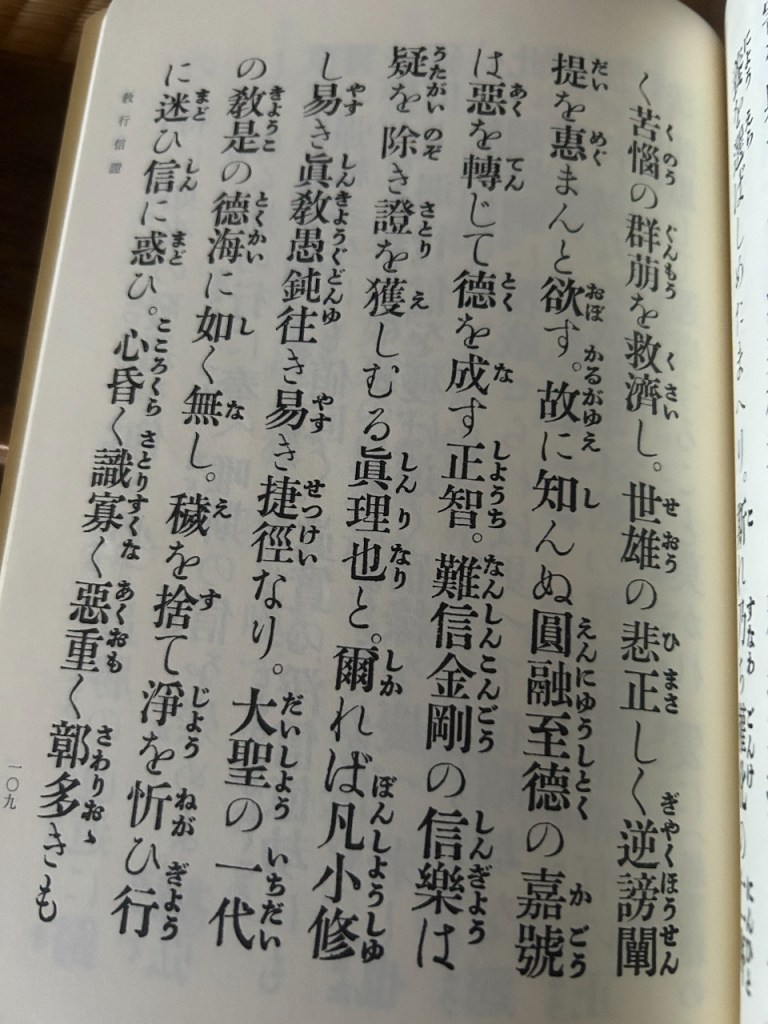 く苦惱の群萠を救濟し。世雄の悲正しく逆謗闡
提を惠まんと欲す。故に知んぬ圓融至德の嘉號
は惡を轉じて德を成す正智。難信金剛の信樂は
疑を除き證を獲しむる眞理也と。爾れば凡小修
し易き眞教愚鈍往き易き捷徑なり。大聖の一代
の教是の德海に如く無し。穢を捨て淨を忻ひ行
に迷ひ信に惑ひ。心昏く識寡く惡重く鄣多きも
教行信證
一〇九